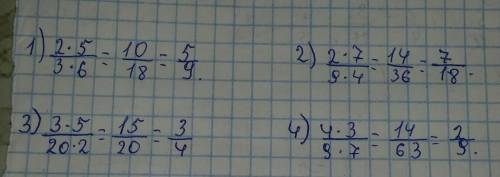 1) 2·5/3·6 = 10/18 = 5/9.
2) 2·7/9·4 = 14/36 = 7/18.
3) 3·5/20·2 = 15/20 = 3/4
4) 4·3/9·7 = 14/63 = 2/9.